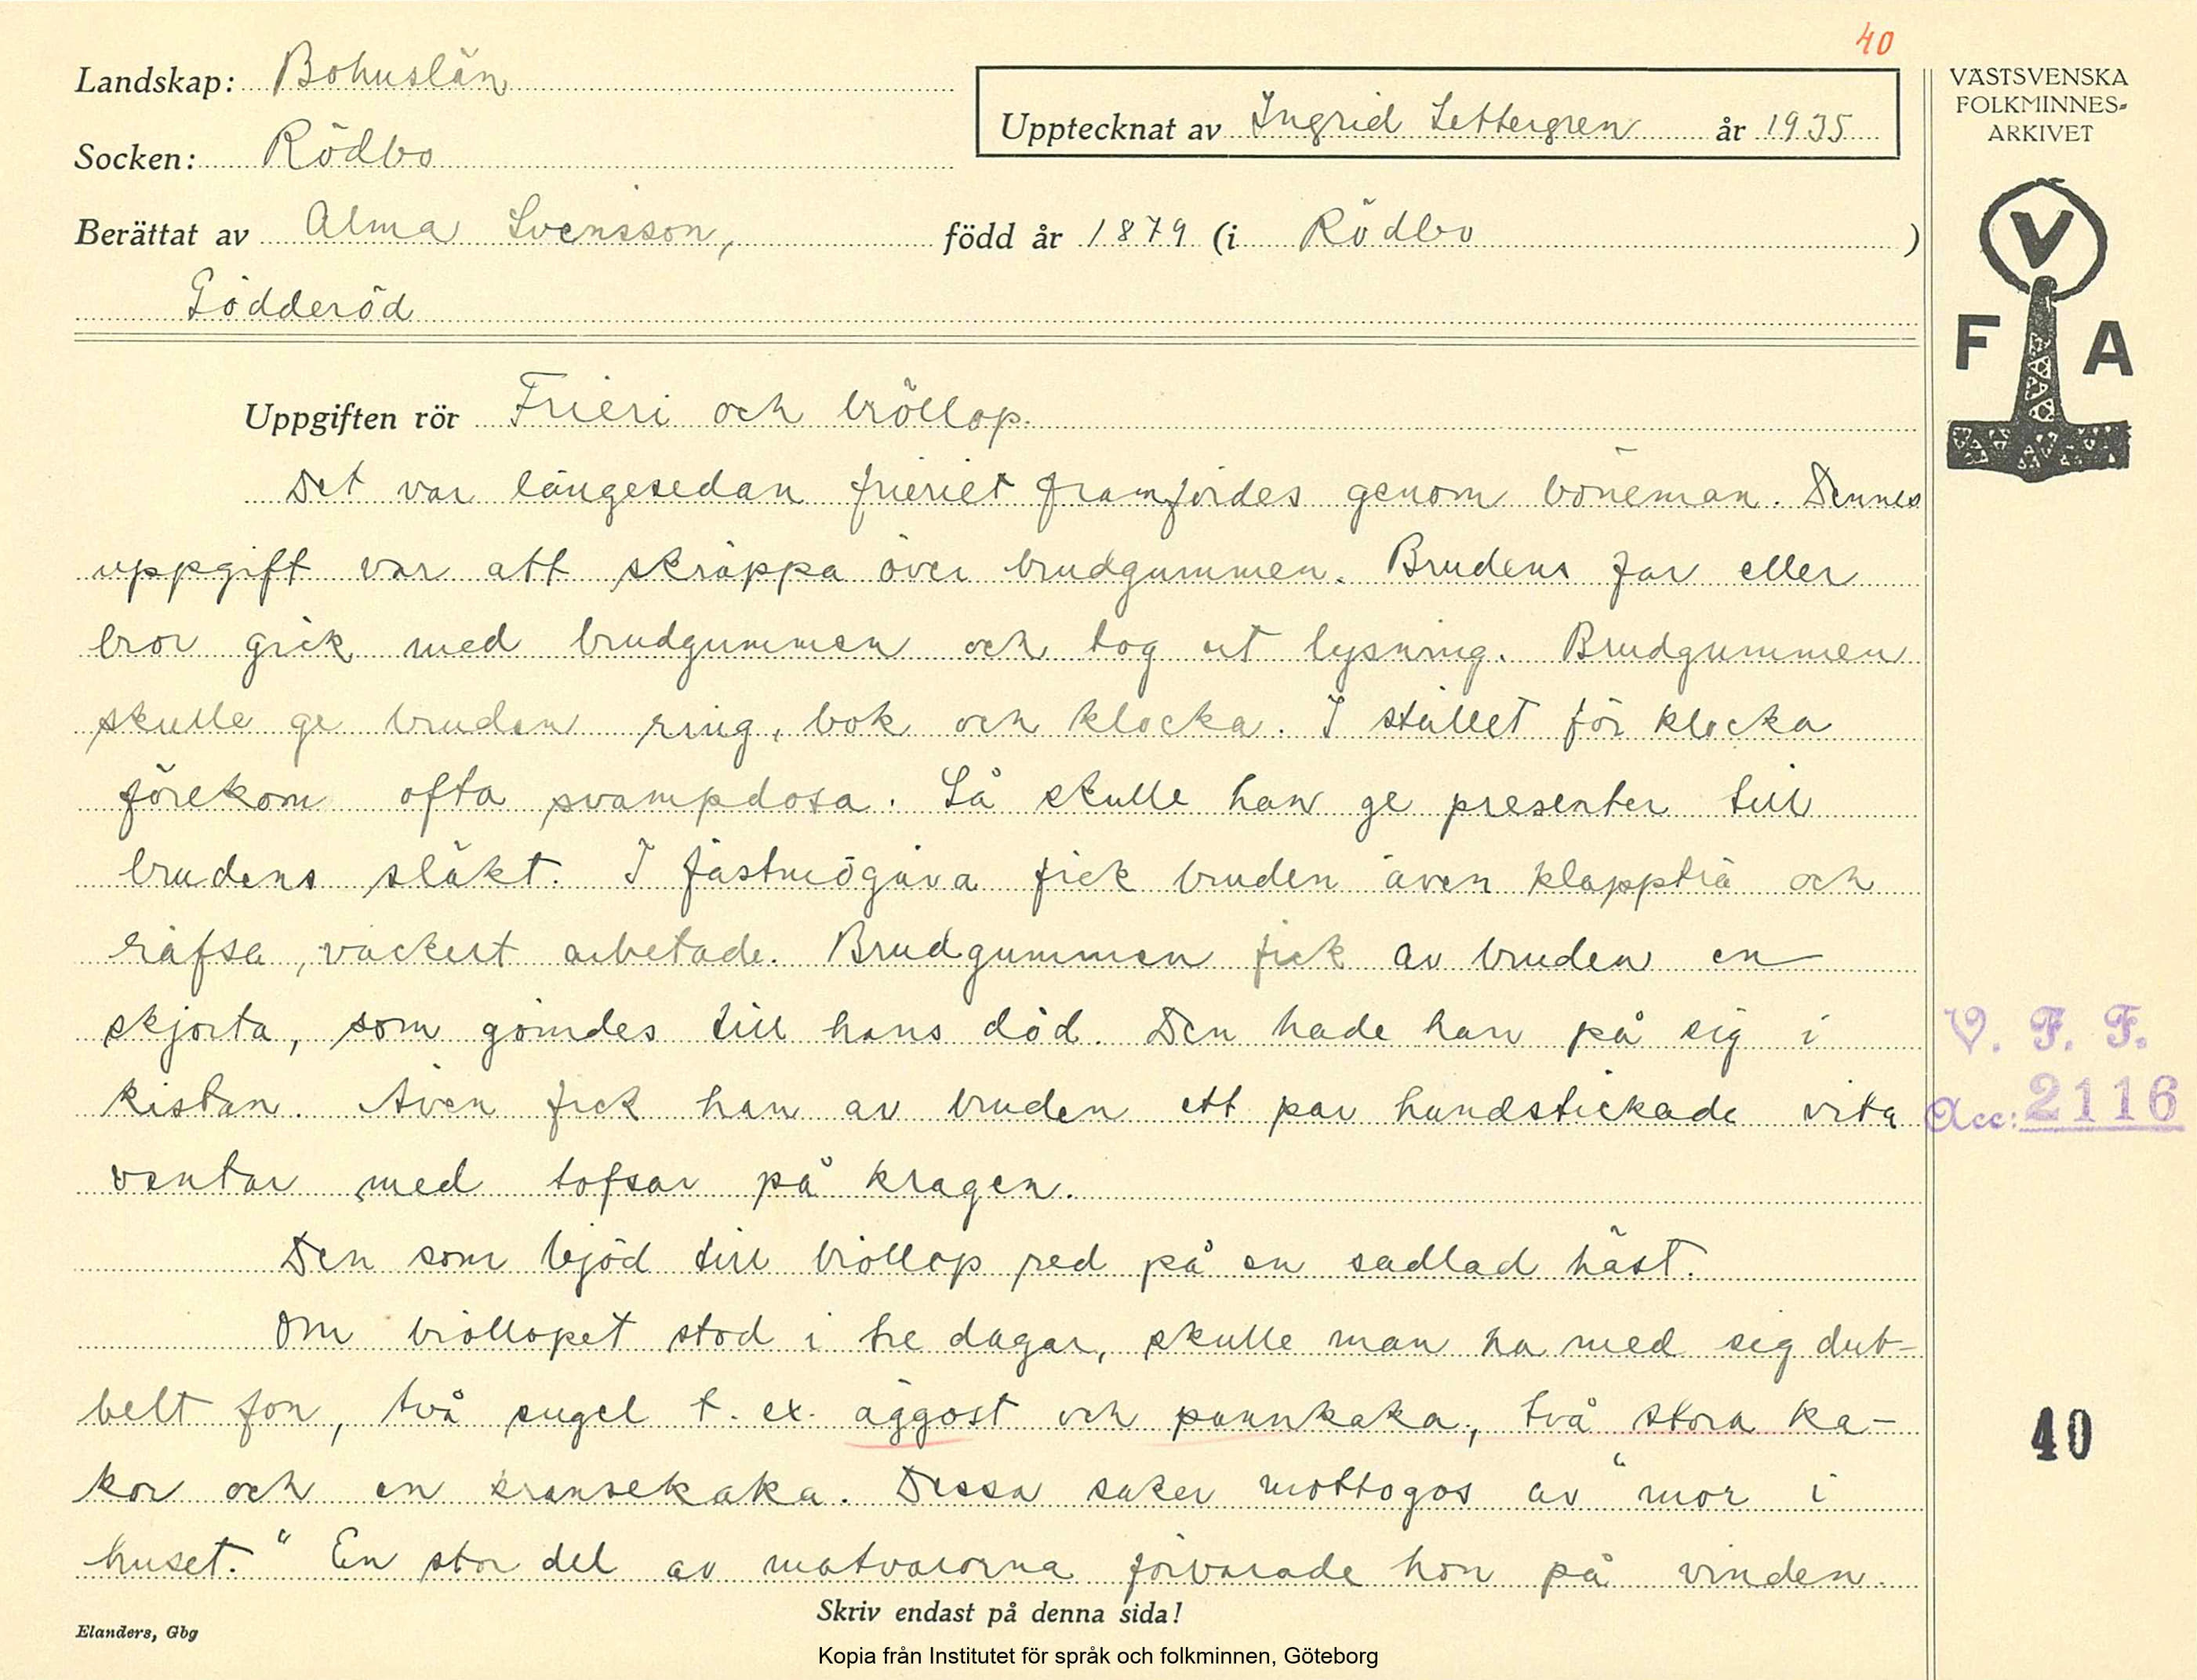 40
Landskap: Bohuslän
Socken: Rödbo
Upptecknat av Ingrid Settergren år 1935
VÄSTSVENSKA
FOLKMINNES-
ARKIVET
Berättat av Alma Svensson, född år 1879 (i Rödbo )
Gödderöd
V
F A
Uppgiften rör Frieri och bröllop.
Det var längesedan frieriet framfördes genom böneman. Dennes
uppgift var att skräppa över brudgummen. Brudens far eller
bror gick med brudgummen och tog ut lysning. Brudgummen
skulle ge bruden ring, bok och klocka. I stället för klocka
förekom ofta svampdosa. Så skulle han ge presenter till
brudens släkt. I fästmögåva fick bruden även klappträ och
räfsa, vackert arbetade. Brudgummen fick av bruden en
skjorta, som gömdes till hans död. Den hade han på sig i
kistan. Även fick han av bruden ett par handstickade vita
vantar med tofsar på kragen.
Den som bjöd till bröllop red på en sadlad häst.
Om bröllopet stod i tre dagar, skulle man ha med sig dub-
belt fon, två sugel t. ex. äggost och pannkaka, två stora ka-
kor och en kransekaka. Dessa saker mottogos av "mor i
huset." En stor del av matvarorna förvarade hon på vinden
V. F. F.
Acc: 2116
40
Skriv endast på denna sida!
Elanders, Gbg
Kopia från Institutet för språk och folkminnen, Göteborg